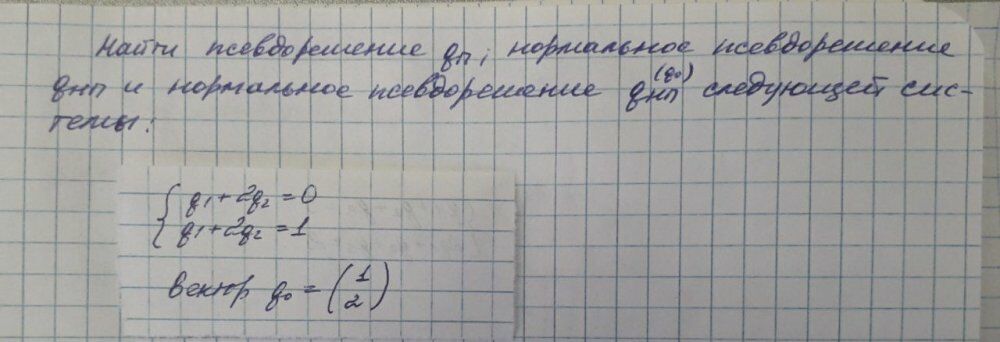 Найти псевдорешение qп, нормальное псевдорешение
qнп и нормальное псевдорешение qнп^(q0) следующей сис-
темы:
q1 + 2q2 = 0
q1 + 2q2 = 1
вектор q0 = (1 2)